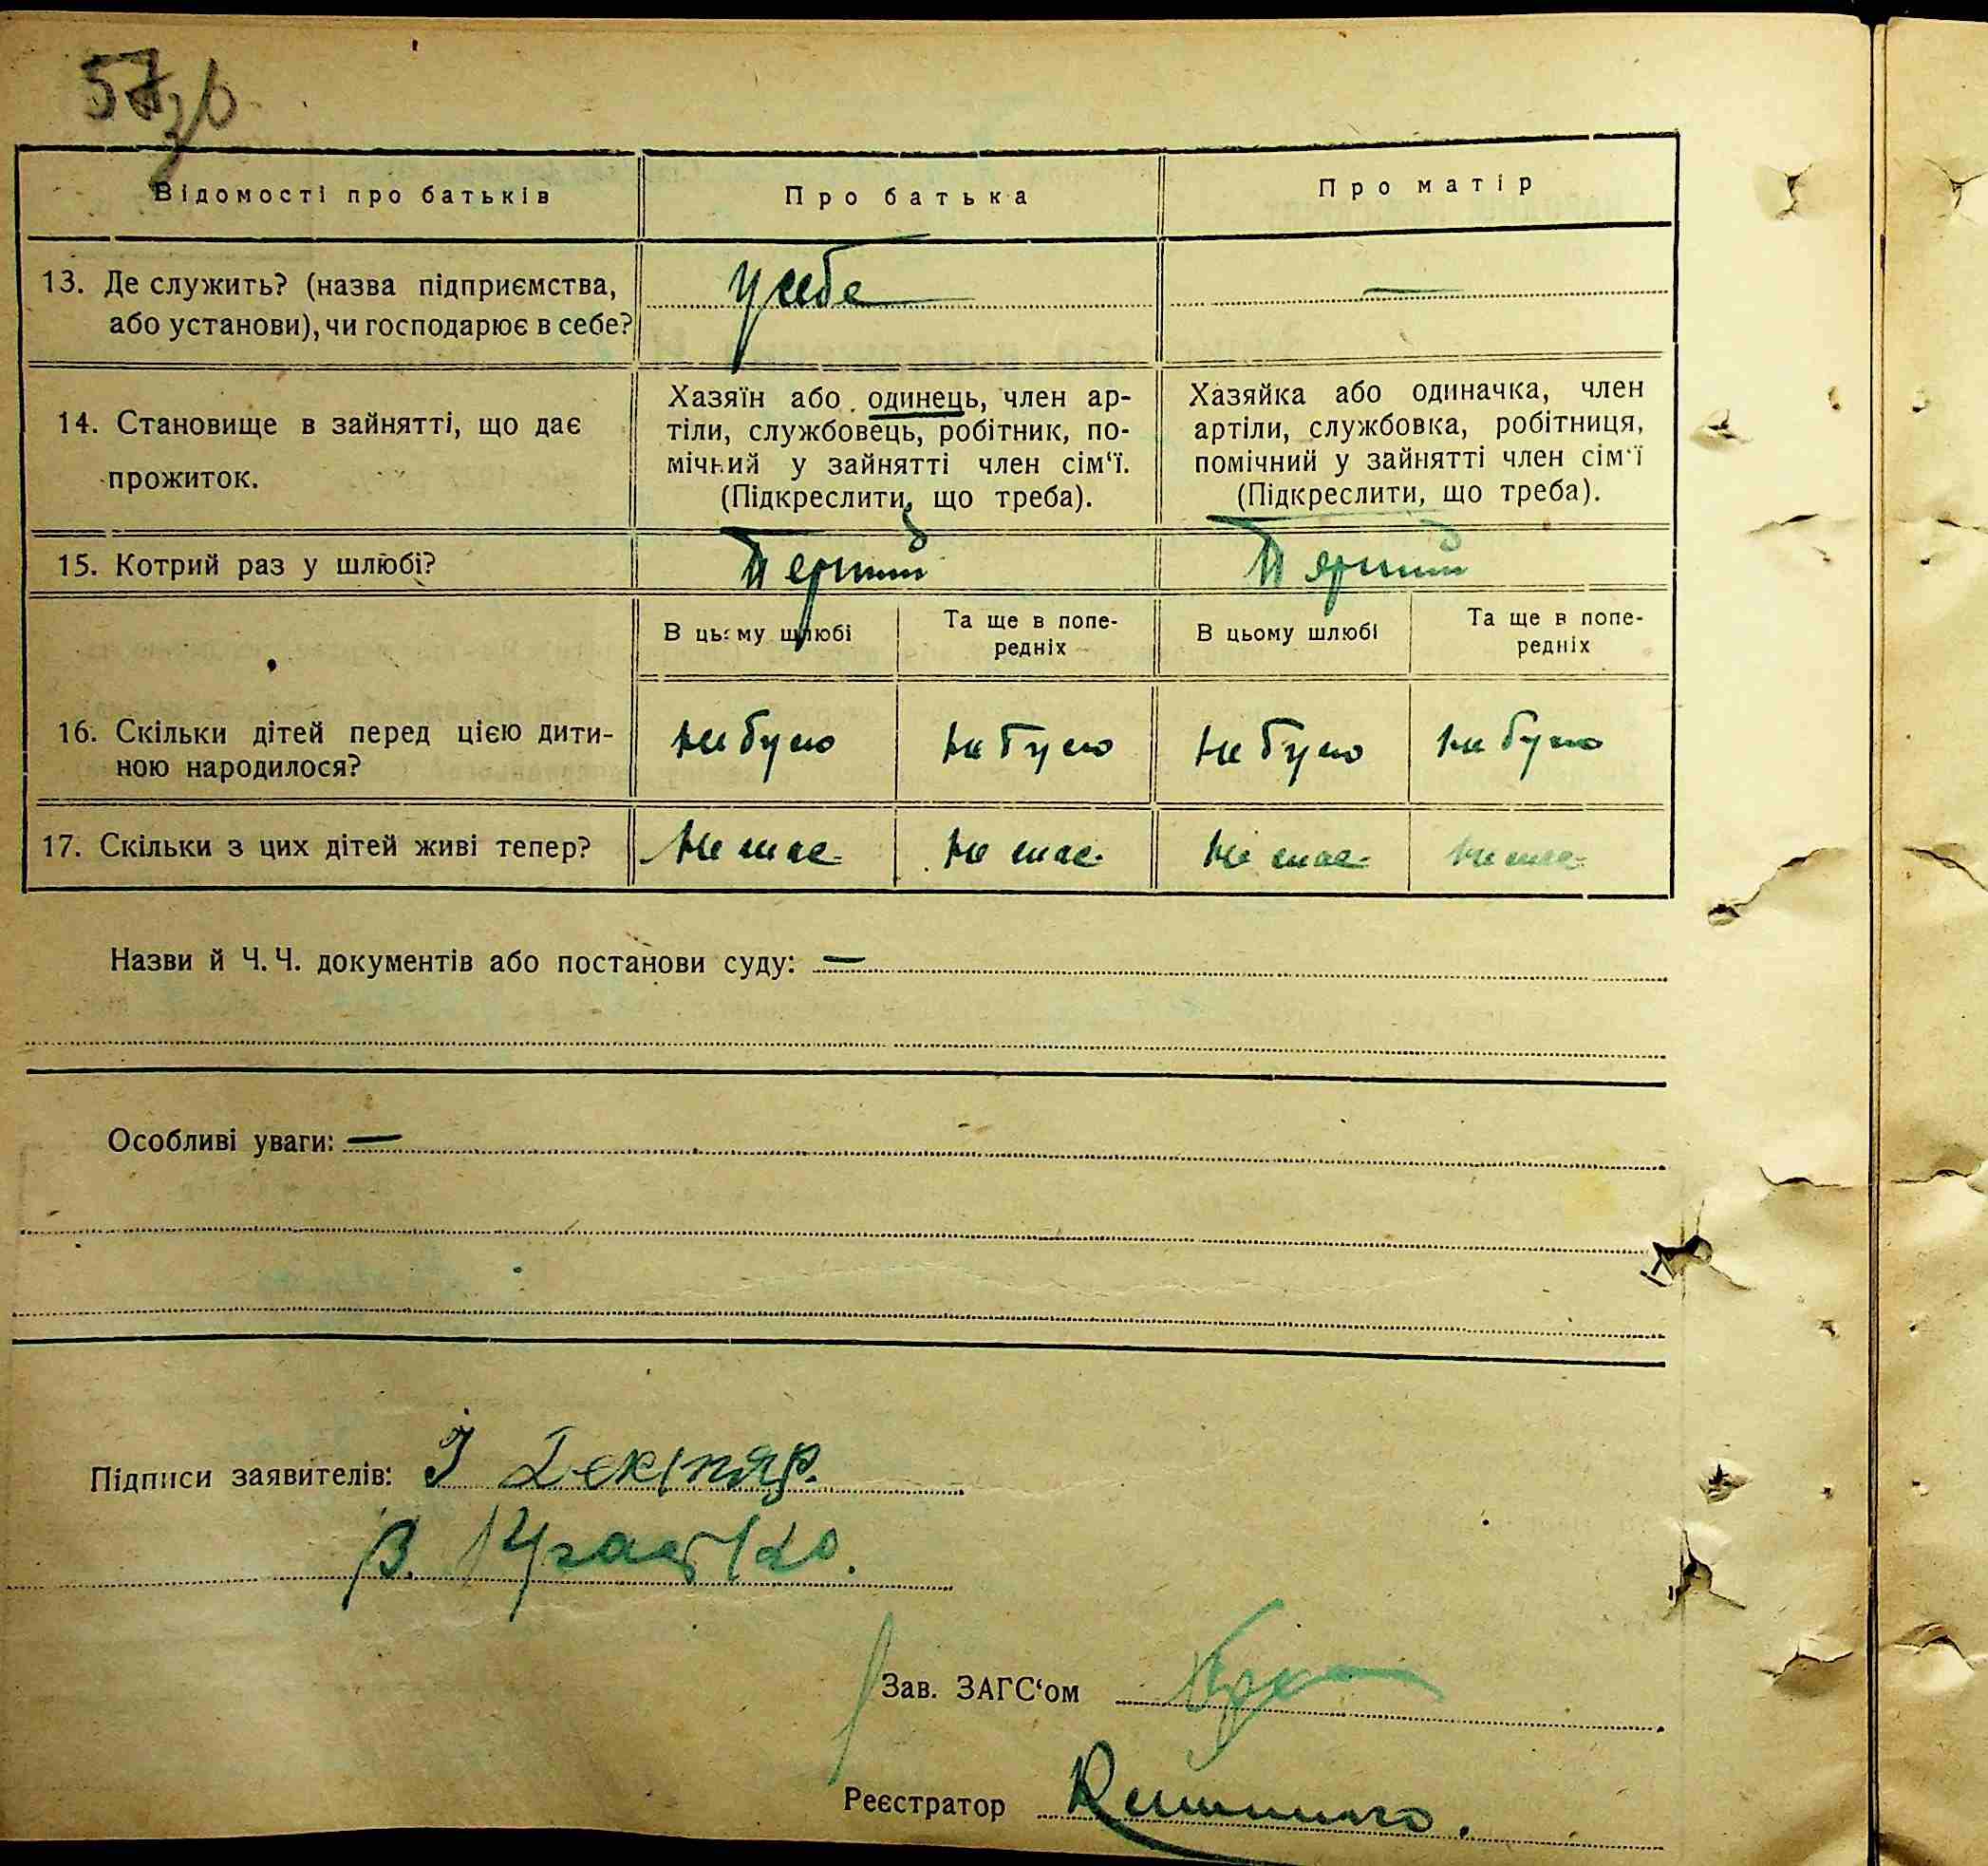 57зв
Відомості про батьків
Про батька
Про матір
13. Де служить? (назва підприємства,
або установи), чи господарює в себе?
у себе
—
14. Становище в зайнятті, що дає
прожиток.
Хазяїн або одинець, член ар-
тіли, службовець, робітник, по-
мічний у зайнятті член сім‘ї.
(Підкреслити, що треба).
Хазяйка або одиначка, член
артіли, службовка, робітниця,
помічний у зайнятті член сім‘ї
(Підкреслити, що треба).
15. Котрий раз у шлюбі?
Перший
Перший
В цьому шлюбі
Та ще в попе-
редніх
В цьому шлюбі
Та ще в попе-
редніх
16. Скільки дітей перед цією дити-
ною народилося?
не було
не було
не було
не було
17. Скільки з цих дітей живі тепер?
Не має
не має
не має
не має
Назви й Ч.Ч. документів або постанови суду: —
Особливі уваги: —
Підписи заявителів: І Дектяр.
В.
Зав. ЗАГС‘ом
Реєстратор